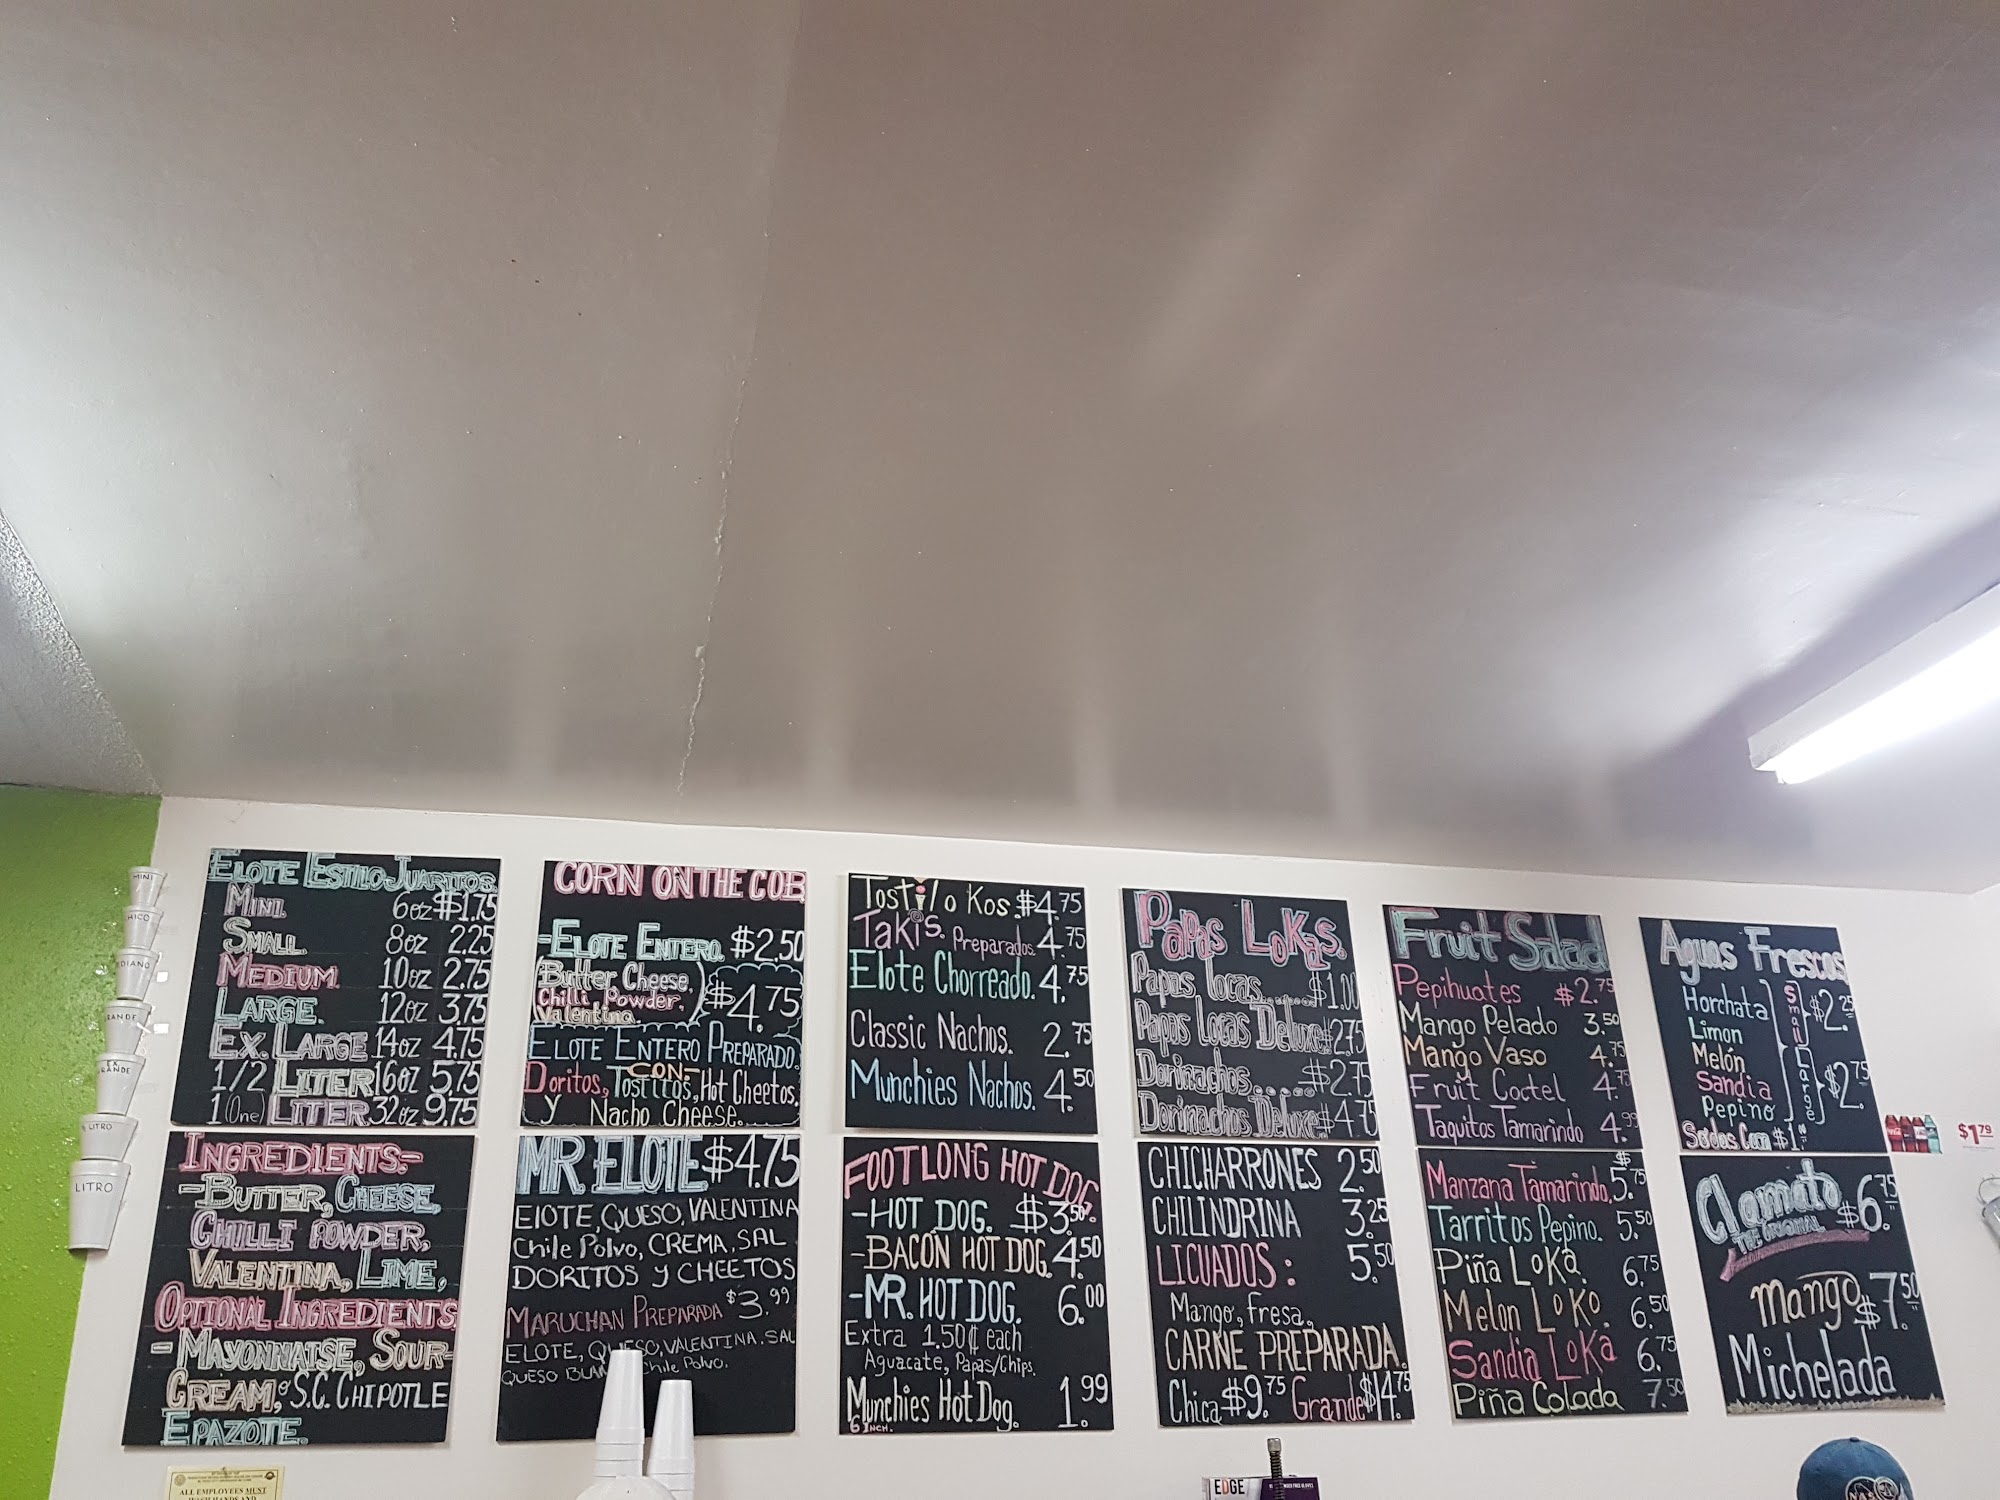 ELOTE ESTILO JUARITOS.
MINI. 6oz $1.75
SMALL. 8oz 2.25
MEDIUM. 10oz 2.75
LARGE. 12oz 3.75
EX. LARGE 14oz 4.75
1/2 LITER 16oz 5.75
1(One) LITER 32oz 9.75
INGREDIENTS-
-BUTTER, CHEESE,
CHILLI POWDER,
VALENTINA, LIME,
OPTIONAL INGREDIENTS
- MAYONNAISE, SOUR-
CREAM, S.C. CHIPOTLE
EPAZOTE.
CORN ON THE COB
-ELOTE ENTERO. $2.50
(Butter Cheese,
Chilli Powder,
Valentina.)
$4.75
ELOTE ENTERO PREPARADO.
CON-
Doritos, Tostitos, Hot Cheetos,
y Nacho Cheese.
MR. ELOTE $4.75
ElOTE, QUESO, VALENTINA
Chile Polvo, CREMA, SAL
DORITOS Y CHEETOS
MARUCHAN PREPARADA $3.99
ELOTE, QUESO, VALENTINA. SAL
QUESO Chile Polvo.
Tostilo Kos. $4.75
Takis. Preparados. 4.75
Elote Chorreado. 4.75
Classic Nachos. 2.75
Munchies Nachos. 4.50
FOOTLONG HOT DOG
-HOT DOG. $3.50
-BACON HOT DOG. 4.50
-MR. HOT DOG. 6.00
Extra 1.50¢ each
Aguacate, Papas/Chips.
Munchies Hot Dog. 1.99
6 INCH.
Papas LoKas.
Papas locas...... $1.00
Papas Locas Deluxe $2.75
Dorinachos..... $2.75
Dorinachos Deluxe $4.75
CHICHARRONES 2.50
CHILINDRINA 3.25
LICUADOS: 5.50
Mango, fresa,
CARNE PREPARADA.
Chica $9.75 Grande $14.75
Fruit Salad
Pepihuates $2.75
Mango Pelado 3.50
Mango Vaso 4.75
Fruit Coctel 4.75
Taquitos Tamarindo 4.99
Manzana Tamarindo. $5.75
Tarritos Pepino. 5.50
Piña LoKa. 6.75
Melon LoKo. 6.50
Sandia LoKa 6.75
Piña Colada 7.50
Aguas Frescas
Horchata
Limon
Melón
Sandia
Pepino
Small $2.25
Large $2.75
$1.79
Clamato $6.75
THE ORIGINAL
Mango $7.50
Michelada
MINI
LITRO
LITRO
ALL EMPLOYEES MUST
EDGE
NASA